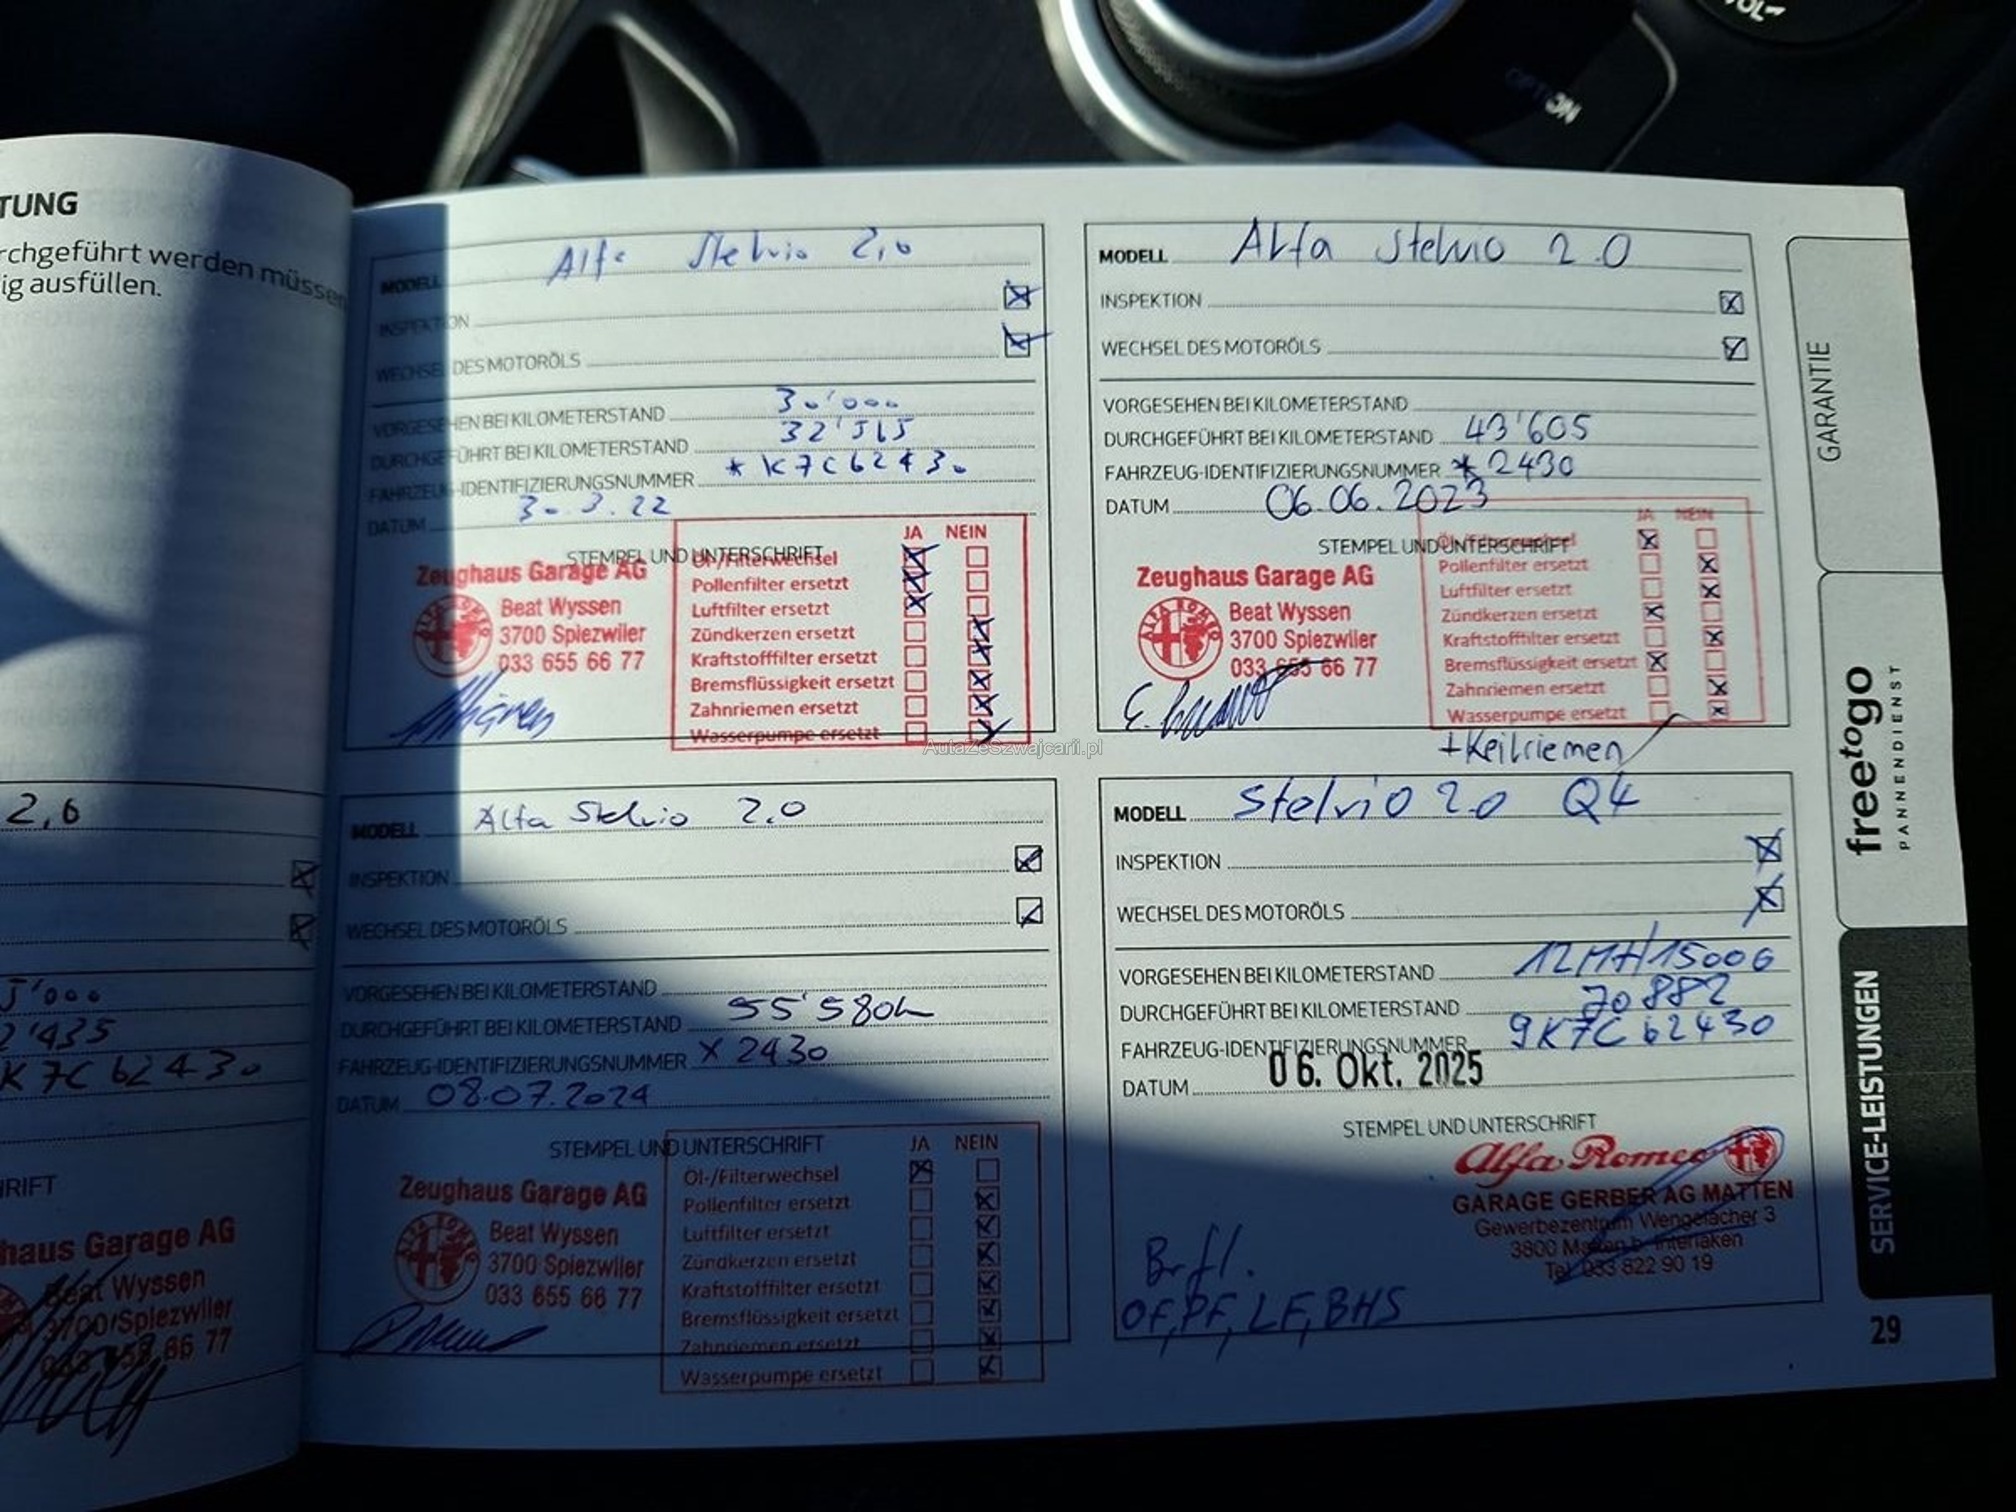 VOL
OPTION
TUNG
rchgeführt werden müssen
ig ausfüllen.
2,6
5'000
2'435
K7C62430
RIFT
haus Garage AG
Beat Wyssen
3700 Spiezwiler
033 655 66 77
MODELL Alfa Stelvio 2,0
INSPEKTION
WECHSEL DES MOTORÖLS
VORGESEHEN BEI KILOMETERSTAND 30'000
DURCHGEFÜHRT BEI KILOMETERSTAND 32'515
FAHRZEUG-IDENTIFIZIERUNGSNUMMER *K7C62430
DATUM 30.3.22
STEMPEL UND UNTERSCHRIFT
Zeughaus Garage AG
Beat Wyssen
3700 Spiezwiler
033 655 66 77
JA NEIN
Öl-/Filterwechsel
Pollenfilter ersetzt
Luftfilter ersetzt
Zündkerzen ersetzt
Kraftstofffilter ersetzt
Bremsflüssigkeit ersetzt
Zahnriemen ersetzt
Wasserpumpe ersetzt
MODELL Alfa Stelvio 2.0
INSPEKTION
WECHSEL DES MOTORÖLS
VORGESEHEN BEI KILOMETERSTAND
DURCHGEFÜHRT BEI KILOMETERSTAND 43'605
FAHRZEUG-IDENTIFIZIERUNGSNUMMER *2430
DATUM 06.06.2023
STEMPEL UND UNTERSCHRIFT
Zeughaus Garage AG
Beat Wyssen
3700 Spiezwiler
033 655 66 77
JA NEIN
Öl-/Filterwechsel
Pollenfilter ersetzt
Luftfilter ersetzt
Zündkerzen ersetzt
Kraftstofffilter ersetzt
Bremsflüssigkeit ersetzt
Zahnriemen ersetzt
Wasserpumpe ersetzt
+Keilriemen
AutaZeSzwajcarii.pl
MODELL Alfa Stelvio 2.0
INSPEKTION
WECHSEL DES MOTORÖLS
VORGESEHEN BEI KILOMETERSTAND
DURCHGEFÜHRT BEI KILOMETERSTAND 55'580
FAHRZEUG-IDENTIFIZIERUNGSNUMMER X 2430
DATUM 08.07.2024
STEMPEL UND UNTERSCHRIFT
Zeughaus Garage AG
Beat Wyssen
3700 Spiezwiler
033 655 66 77
JA NEIN
Öl-/Filterwechsel
Pollenfilter ersetzt
Luftfilter ersetzt
Zündkerzen ersetzt
Kraftstofffilter ersetzt
Bremsflüssigkeit ersetzt
Zahnriemen ersetzt
Wasserpumpe ersetzt
MODELL Stelvio 2.0 Q4
INSPEKTION
WECHSEL DES MOTORÖLS
VORGESEHEN BEI KILOMETERSTAND 12Mt/15000
DURCHGEFÜHRT BEI KILOMETERSTAND 70882
FAHRZEUG-IDENTIFIZIERUNGSNUMMER 9K7C62430
DATUM 06. Okt. 2025
STEMPEL UND UNTERSCHRIFT
Alfa Romeo
GARAGE GERBER AG MATTEN
Gewerbezentrum Wengelacher 3
3800 Matten b. Interlaken
Tel. 033 822 90 19
Brfl.
OF, PF, LF, BHS
GARANTIE
freetogo
PANNENDIENST
SERVICE-LEISTUNGEN
29